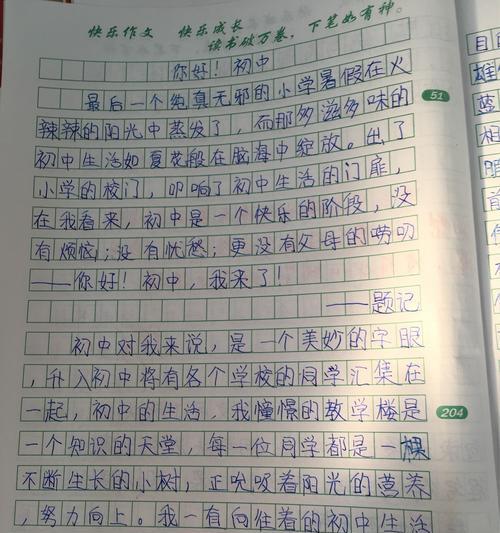 快乐作文 快乐成长
读书破万卷，下笔如有神。
你好！初中
最后一个纯真无邪的小学暑假在火
辣辣的阳光中蒸发了，而那多滋多味的
初中生活如夏花般在脑海中绽放。出了
小学的校门，叩响了初中生活的门扉，
在我看来，初中是一个快乐的阶段，没
有烦恼；没有忧愁；更没有父母的唠叨
——你好！初中，我来了！
——题记
初中对我来说，是一个美妙的字眼
，升入初中将有各个学校的同学汇集在
一起，初中的生活，我憧憬的教学楼是
一个知识的天堂，每一位同学都是一棵
不断生长的小树，正吮吸着阳光的营养
，努力向上。我一有向往着的初中生活
51
204